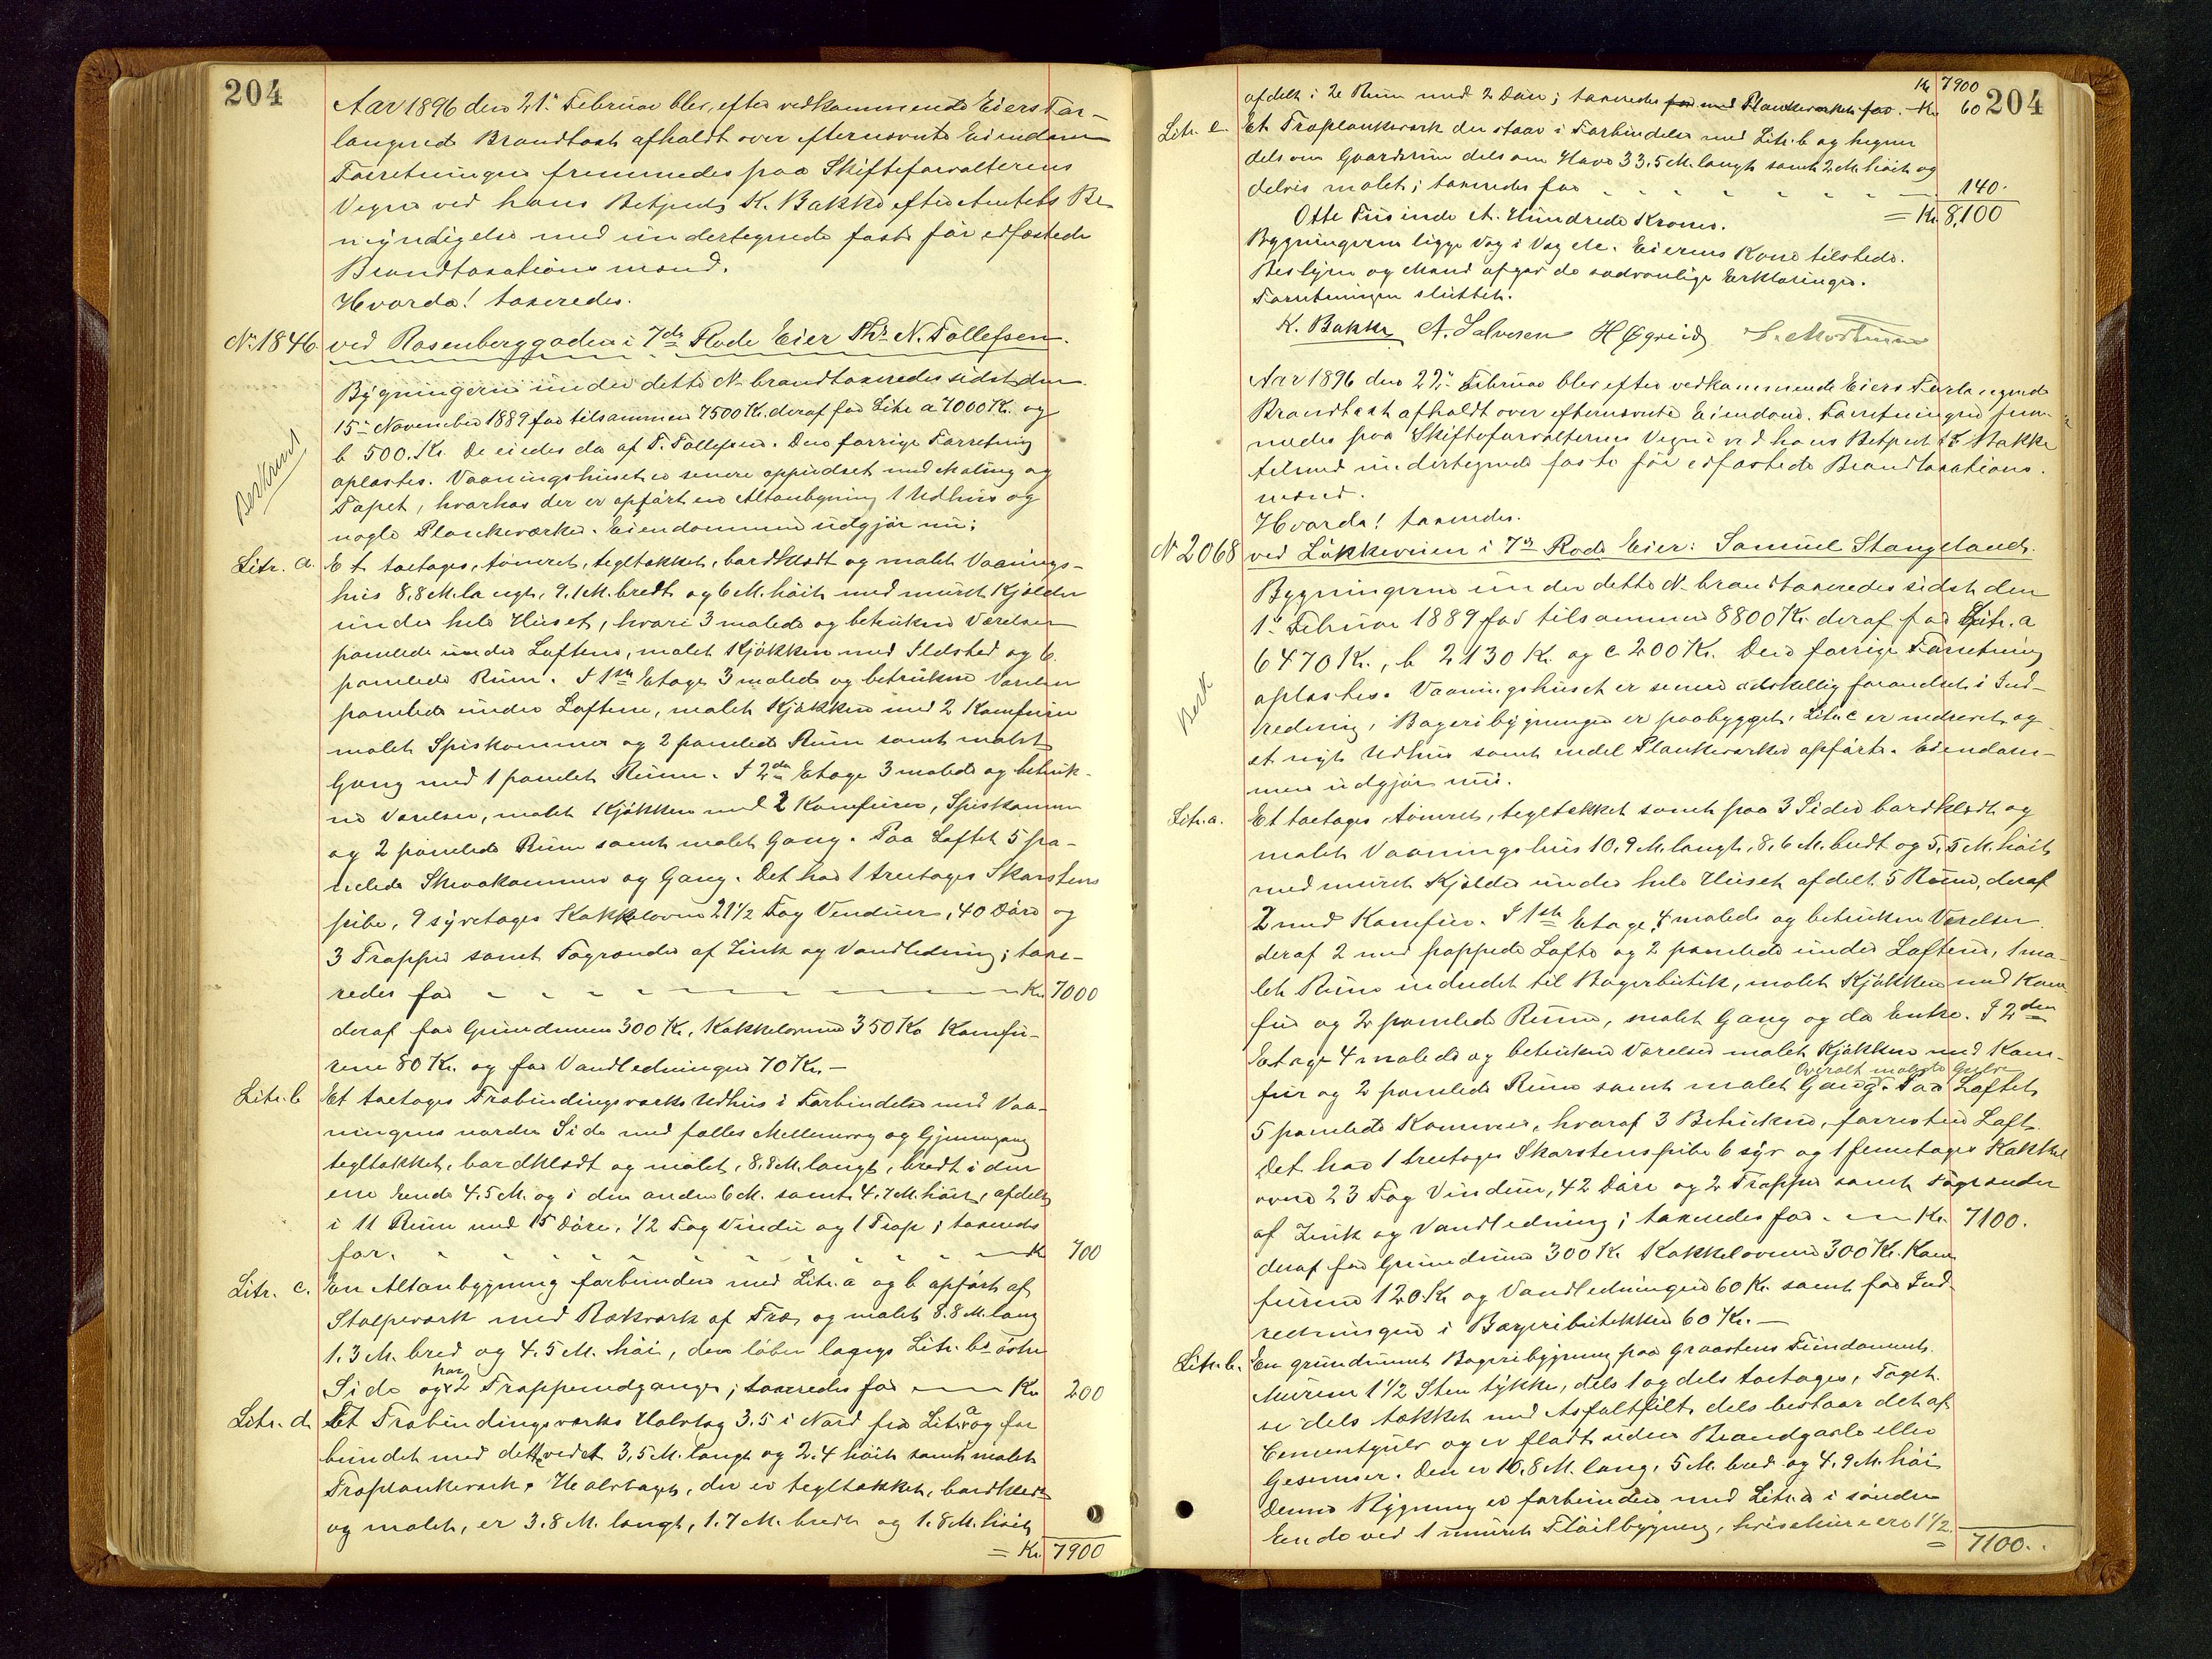 204
Aar 1896 den 21. Februar blev, efter vedkommende Eiers For-
langende Brandtaxt afholdt over efternævnte Eiendom
Forretningen fremmedes paa Skifteforvalterens
Vegne ved hans Betjent K. Bakke efter Amtets Be
myndigelse med undertegnede faste før edfæstede
Brandtaxationsmænd.
Hvorda! taxeredes.
No 1846. ved Rosenberggaden i 7de Rode Eier Ths. N. Tollefsen.
Bygningerne under dette No brandtaxeredes sidst den
15. November 1889 for tilsammen 7500 Kr. deraf for Litr a 7000 Kr. og
b 500. Kr. De eiedes da af T. Tollefsen. Den forrige Forretning
oplæstes. Vaaningshuset er senere oppudset med Maling og
Tapet, hvorhos der er opført en Altanbygning 1 Udhus og
nogle Plankeværker. Eiendommen udgjør nu:
Litr. a. Et toetages, tømret, tegltækket, bordklædt og malet Vaanings-
hus 8.8 M. langt, 9.1 M. bredt og 6 M. høit med muret Kjælder
under hele Huset, hvori 3 malede og betrukne Værelser
panlede under Loftene, malet Kjøkken med Ildsted og 6
panlede Rum. I 1ste Etage 3 malede og betrukne Værelser
panlede under Loftene, malet Kjøkken med 2 Komfurer
malet Spiskammer og 2 panlede Rum samt malet
Gang med 1 panlet Rum. I 2den Etage 3 malede og betruk-
ne Værelser, malet Kjøkken med 2 Komfurer, Spiskammer
og 2 panlede Rum samt malet Gang. Paa Loftet 5 pa-
nelede Skraakammer og Gang. Det har 1 treetages Skorstens
pibe, 9 syvetages Kakkelovne 21 1/2 Fag Vinduer, 40 Døre og
3 Trapper samt Tagrender af Zink og Vandledning; taxe-
redes for Kr. 7000
deraf for Grundmuren 300 Kr, Kakkelovnene 350 Kr Komfu-
rene 80 Kr. og for Vandledningen 70 Kr.—
Litr. b Et toetages Træbindingsværks Udhus i Forbindelse med Vaa-
ningens nordre Side med fælles Mellemvæg og Gjennemgang
tegltækket, bordklædt og malet, 8,8 M. langt, bredt i den
ene Ende 4.5 M. og i den anden 6 M. samt 4.7 M. høit, afdelt
i 11 Rum med 15 Døre, 1/2 Fag Vindu og 1 Trap; taxeredes
for. Kr 700
Litr. c. En Altanbygning forbunden med Litr. a og b opført af
Stolpeværk med Rækværk af Træ og malet 8.8 M. lang
1.3 M. bred og 4.5 M. høi, den løber langs Litr. bs østre
Side og har 2 Trappenedgange; taxeredes for Kr 200
Litr. d. Et Træbindingsværks Halvtag 3.5 i Nord fra Litr. a og for
bundet med dette ved et 3,5 M. langt og 2.4 høit samt malet
Træplankeværk. Halvtaget, der er tegltækket, bordklædt
og malet, er 3.8 M. langt, 1.7 M. bredt og 1.8 M. høit
= Kr. 7900
204
Kr 7900
afdelt i 2e Rum med 2 Døre; taxeredes for med Plankeværket for. Kr. 60
Litr. e. Et Træplankeværk der staar i Forbindelse med Litr. b og hegner
dels om Gaardsrum dels om Have 33.5 M. langt samt 2 M. høit og
delvis malet; taxeredes for 140.
Otte Tusinde et Hundrede Kroner. = Kr. 8,100
Bygningerne ligge Væg i Væg etc. Eierens Kone tilstede.
Bestyrer og Mænd afgav de sædvanlige Erklæringer.
Forretningen sluttet.
K. Bakke A. Salvesen H Øgreid S. Mortensen
Aar 1896 den 22. Februar blev efter vedkommende Eiers Forlangende
Brandtaxt afholdt over efternævnte Eiendom. Forretningen frem-
medes paa Skifteforvalterens Vegne ved hans Betjent K. Bakke
tilmed undertegnede faste før edfæstede Brandtaxations.
mænd.
Hvorda! taxeredes.
No 2068 ved Løkkeveien i 7de Rode Eier: Samuel Stangeland.
Bygningerne under dette No brandtaxeredes sidst den
1. Februar 1889 for tilsammen 8800 Kr. deraf for Litr. a
6470 Kr., b 2130 Kr. og c 200 Kr. Den forrige Forretning
oplæstes. Vaaningshuset er senere adskillig forandret i Ind-
redning, Bageribygningen er paabygget, Litr. c er nedrevet og
et nyt Udhus samt endel Plankeværker opført. Eiendom-
men udgjør nu.
Litr. a. Et toetages, tømret, tegltækket samt paa 3 Sider bordklædt og
malet Vaaningshus 10.9 M. langt, 8,6 M. bredt og 5,5 M. høit
med muret Kjælder under hele Huset afdelt 5 Rum, deraf
2 med Komfur. I 1ste Etage 4 malede og betrukne Værelser
deraf 2 med pappede Lofte og 2 panlede under Loftene, 1 ma-
let Rum indredet til Bagerbutik, malet Kjøkken med Kom
fur og 2 panlede Rum, malet Gang og do Entre. I 2den
Etage 4 malede og betrukne Værelser malet Kjøkken med Kom-
Overalt malede Gulve
fur og 2 panlede Rum samt malet Gang. Paa Loftet
5 panlede Kammer, hvoraf 3 Betrukne, forresten Loft.
Det har 1 treetages Skorstenspibe 6 syv og 1 femetages Kakkel
ovne 23 Fag Vinduer, 42 Døre og 2 Trapper samt Tagrender
af Zink og Vandledning; taxeredes for. Kr. 7100.
deraf for Grundmuren 300 Kr. Kakkelovnene 300 Kr. Kom
furene 120. Kr og Vandledningen 60 Kr. samt for Ind-
redningen i Bageributikken 60 Kr.—
Litr. b. En grundmuret Bageribygning paa Graastens Fundament.
Murene 1 1/2 Sten tykke, dels 1 og dels toetages, Taget
er dels tækket med Asfaltfilt, dels bestaar det af
Cementgulv og er fladt uden Brandgavle eller
Gesimser. Den er 10.8 M. lang, 5 M. bred og 4.9 M. høi
Denne Bygning er forbunden med Litr. a i søndre
Ende ved 1 muret Fløibygning, hvis Mure ere 1 1/2
= 7100..